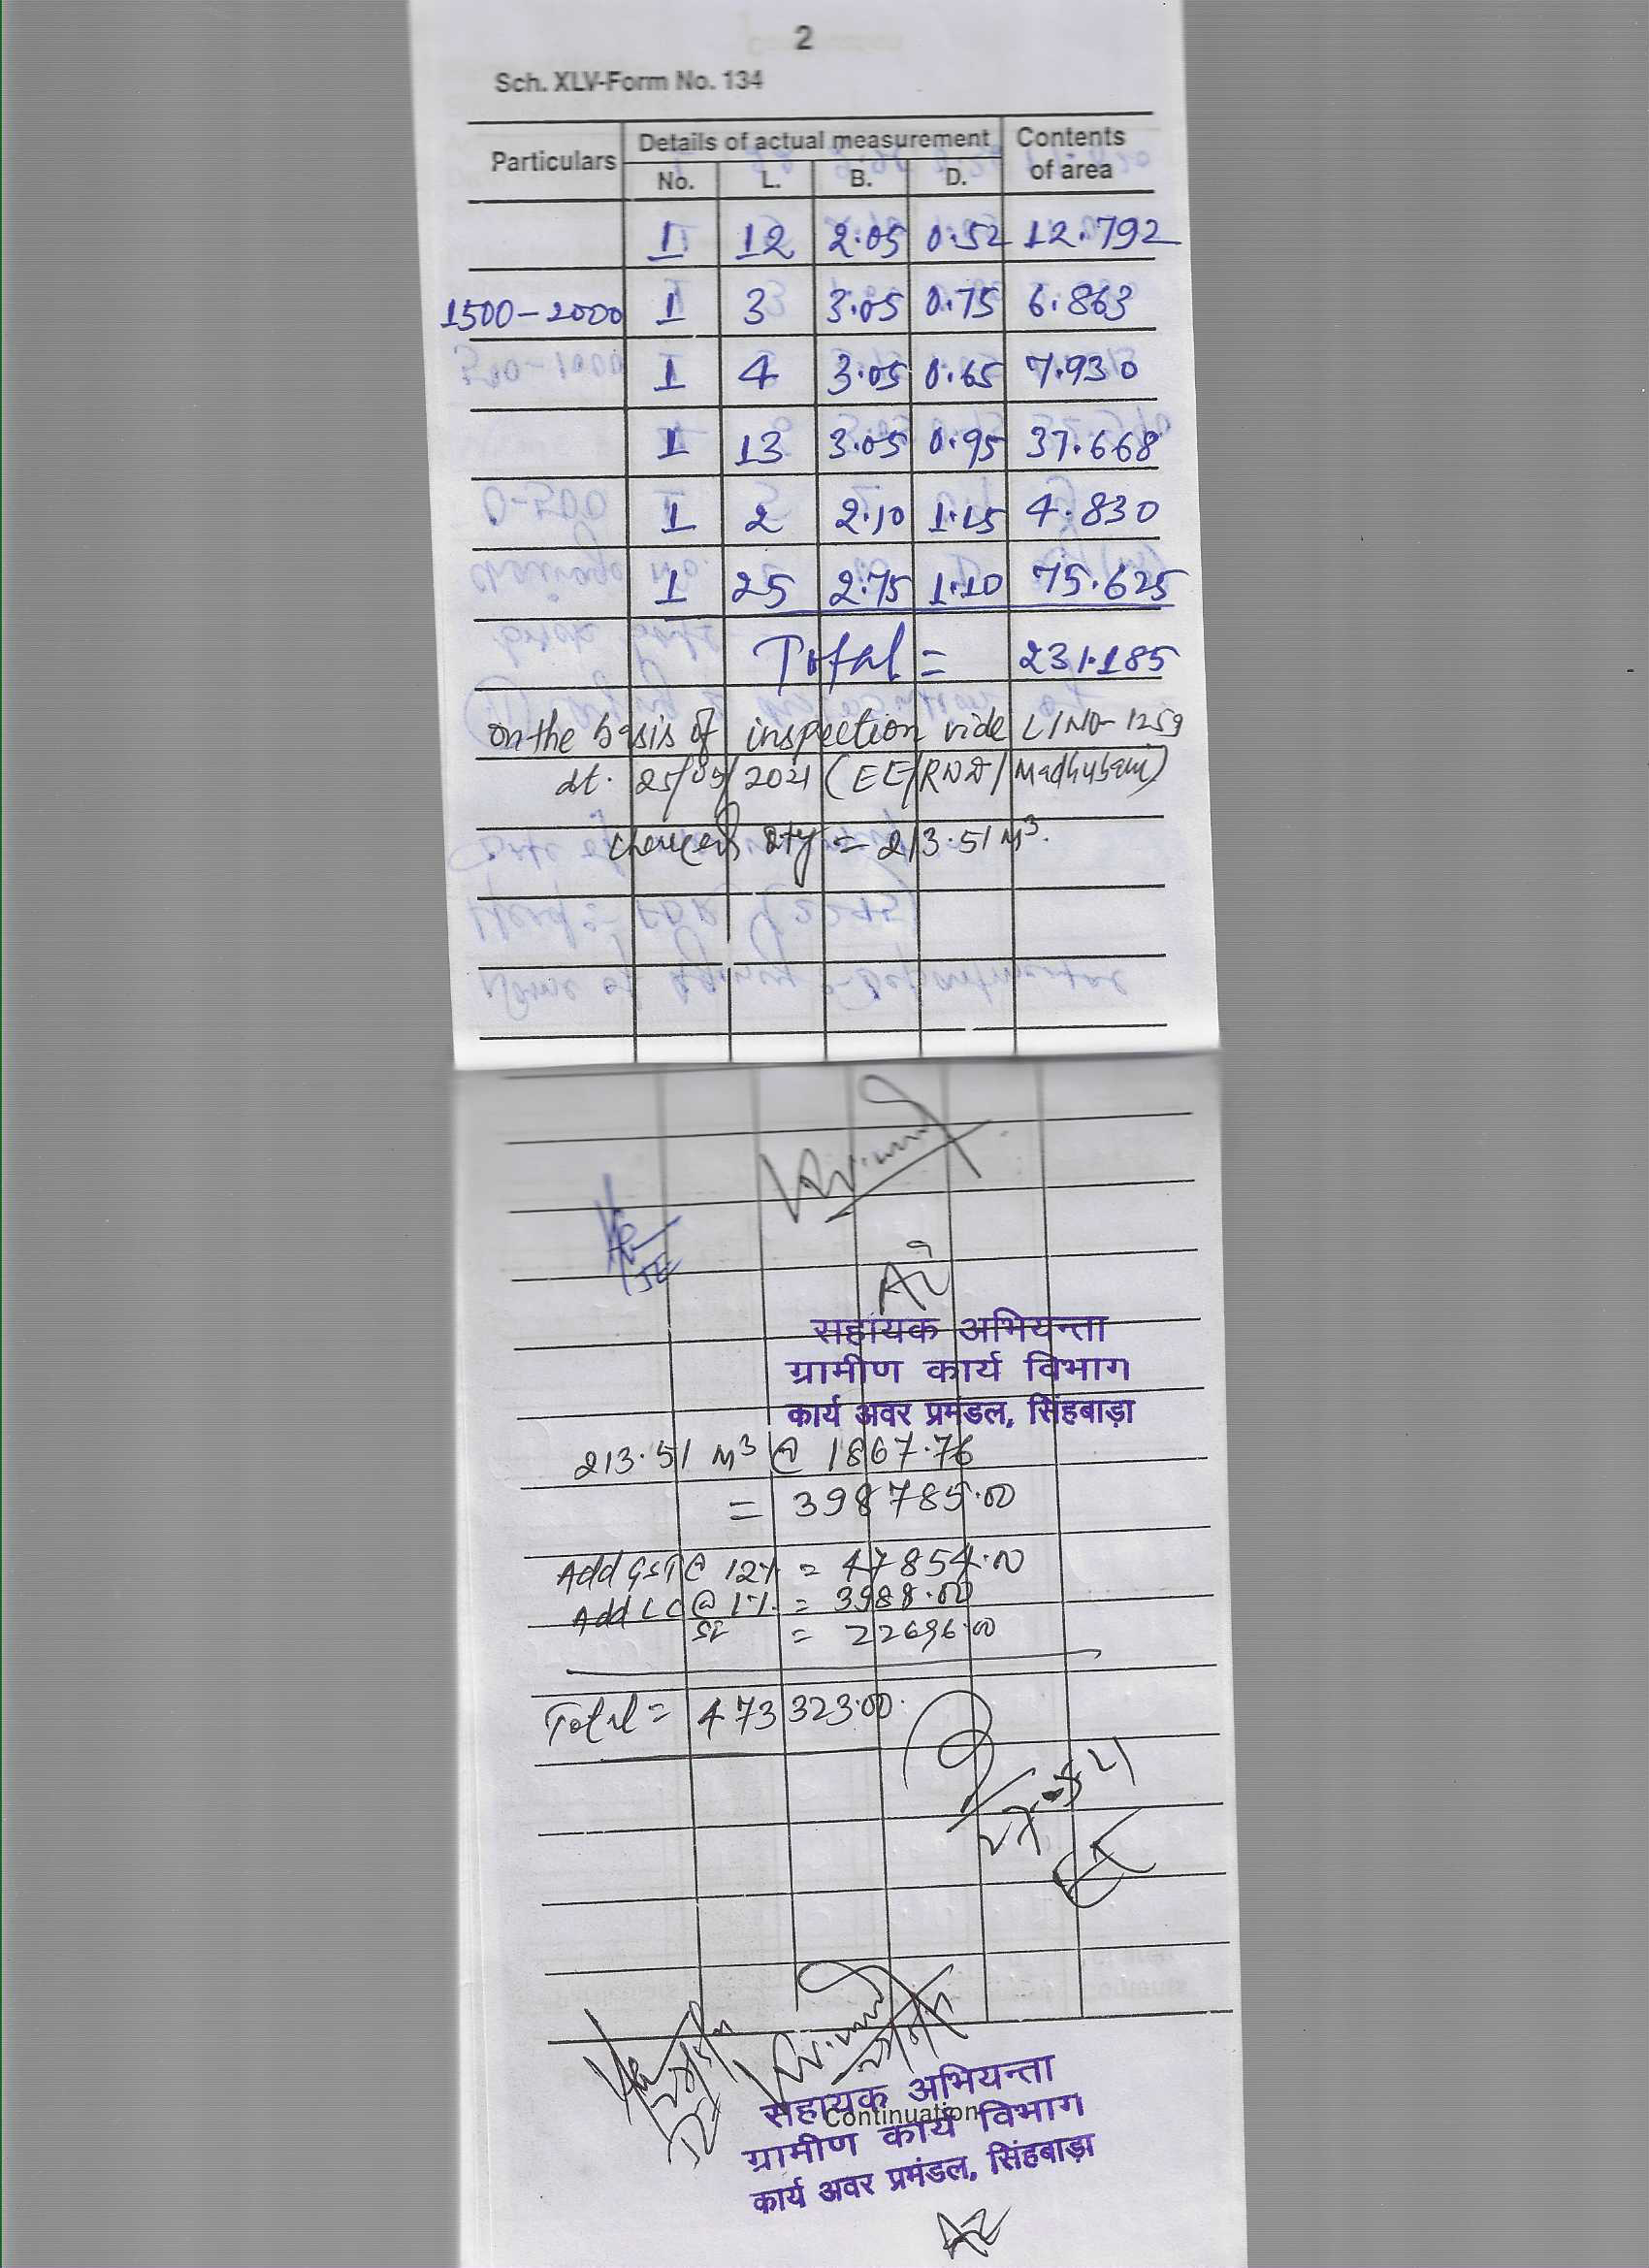 2
Sch. XLV-Form No. 134
Particulars Details of actual measurement Contents of area
No. L. B. D.
1 12 2.05 0.52 12.792
1500-2000 1 3 3.05 0.75 6.863
1 4 3.05 0.65 7.930
1 13 3.05 0.95 37.668
1 2 2.10 1.15 4.830
1 25 2.75 1.10 75.625
Total = 231.185
on the basis of inspection vide L/NO- 1259
dt. 25/05/2021 (EE/RWD/Madhubani)
qty = 213.51 M³.
JE
AE
सहायक अभियन्ता
ग्रामीण कार्य विभाग
कार्य अवर प्रमंडल, सिंहबाड़ा
213.51 M³ @ 1867.76
= 398785.00
Add GST @ 12% = 47854.00
Add LC @ 1% = 3988.00
SF = 22696.00
Total = 473323.00
EE
JE
सहायक अभियन्ता
Continuation
ग्रामीण कार्य विभाग
कार्य अवर प्रमंडल, सिंहबाड़ा
AE